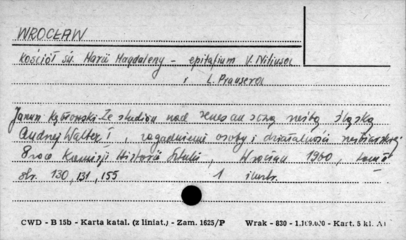 WROCŁAW
Kościół św. Marii Magdaleny - epitafium V. Nitiusa
i L. Prausera
Janina Kębłowski Ze studiów nad renesansową rzeźbą śląską
Andrzej Walter I, zagadnienie osoby i działalności
Prace Komisji Historii Sztuki, Wrocław 1960, tom I
str. 130, 131, 155 1 ilustr.
CWD - B 15b - Karta katal. (z liniat.) - Zam. 1625/P Wrak - 830 - - Kart. 5 kl. A1